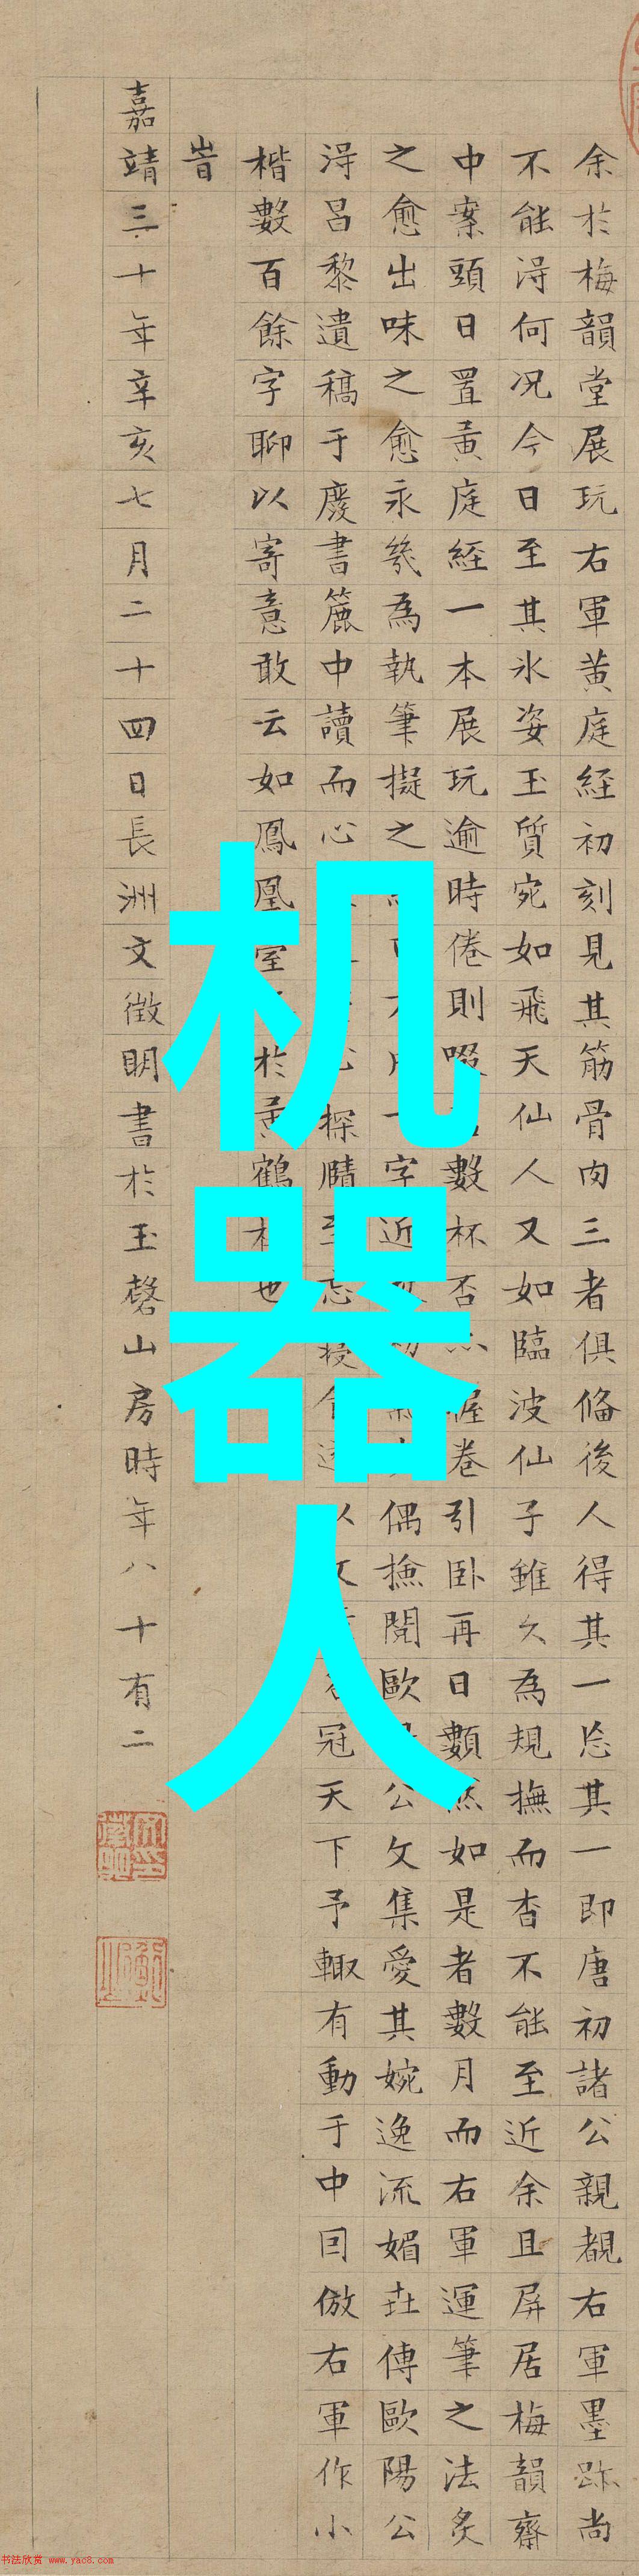 余於梅韻堂展玩右軍黄庭経初刻見其筋骨肉三者俱俻後人得其一忘其一即唐初諸公親覩右軍墨跡尚
不能淂何况今日至其氷姿玉質宛如飛天仙人又如臨波仙子雖久為規撫而杳不能至近余且屏居梅韻齋
中案頭日置黄庭經一本展玩逾時倦則啜數杯否握卷引卧再日數如是者數月而右軍運筆之法炙
之愈出味之愈永為執筆擬之字近偶撿閱歐公文集愛其婉逸流媚傳歐陽公
淂呂黎遺稿于廢書簏中讀而心探賾至忘冠天下予輙有動于中囙倣右軍作小
楷數百餘字聊以寄意敢云如鳳凰於黄鶴也
旹
嘉靖三十年辛亥七月二十四日長洲文徵明書於玉磬山房時年八十有二
机
器
人
书法欣赏 www.yac8.com